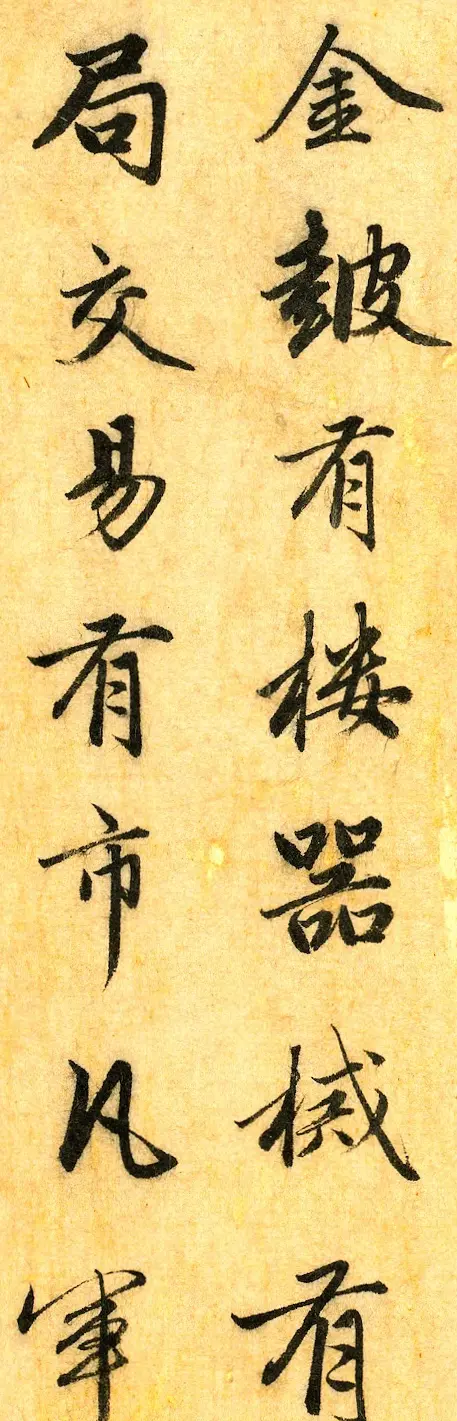 金鼓有楼器械有
局交易有市凡軍